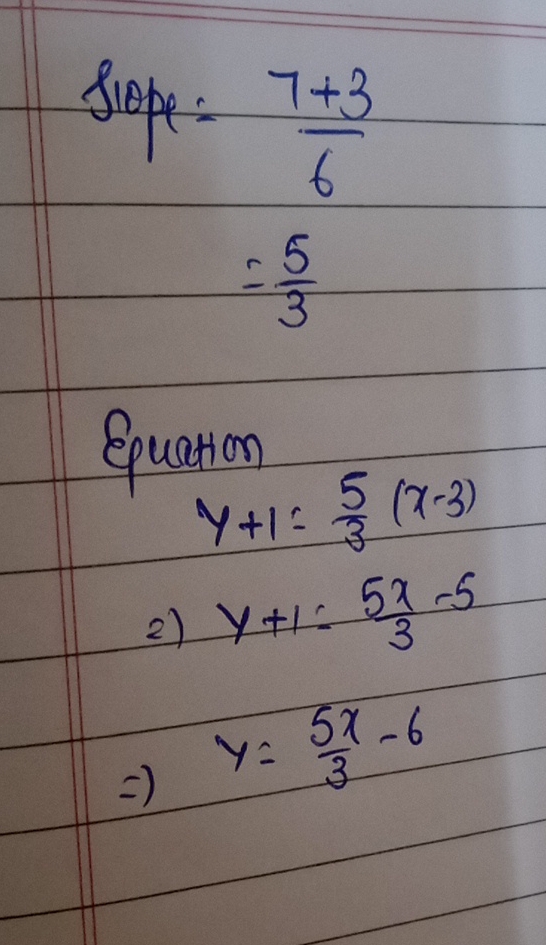 Slope = 7+3/6
= 5/3
Equation
y+1 = 5/3 (x-3)
=) y+1 = 5x/3 -5
=) y = 5x/3 - 6